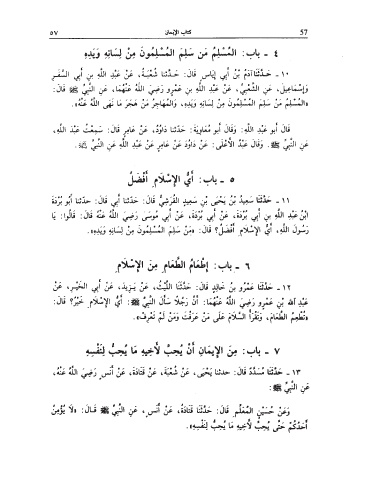 57 كتاب الإيمان ٥٧
٤ - باب: المُسْلِمُ مَن سَلِمَ المُسْلِمُونَ مِنْ لِسَانِهِ وَيَدِهِ
١٠ - حَدَّثَنَا آدَمُ بْنُ أَبِي إِيَاسٍ قَالَ: حَدَّثنا شُعْبَةُ، عَنْ عَبْدِ اللَّهِ بنِ أَبِي السَّفَرِ
وَإِسْمَاعِيلَ، عَنِ الشَّعْبِيِّ، عَنْ عَبْدِ اللَّهِ بْنِ عَمْرٍو رَضِيَ اللَّهُ عَنْهُمَا، عَنِ النَّبِيِّ ﷺ قَالَ:
«المُسْلِمُ مَنْ سَلِمَ المُسْلِمُونَ مِنْ لِسَانِهِ وَيَدِهِ، وَالمُهَاجِرُ مَنْ هَجَرَ مَا نَهَى اللَّهُ عَنْهُ».
قَالَ أَبو عَبْدِ اللَّهِ: وَقَالَ أَبو مُعَاوِيَةَ: حَدَّثنا دَاوُدُ، عَنْ عَامِرٍ قَالَ: سَمِعْتُ عَبْدَ اللَّهِ،
عَنِ النَّبِيِّ ﷺ. وَقَالَ عَبْدُ الأَعْلَى: عَنْ دَاوُدَ عَنْ عَامِرٍ عَنْ عَبْدِ اللَّهِ عَنِ النَّبِيِّ ﷺ.
٥ - باب: أَيُّ الإِسْلَامِ أَفْضَلُ
١١ - حَدَّثَنَا سَعِيدُ بْنُ يَحْيَى بْنِ سَعِيدٍ القُرَشِيُّ قَالَ: حَدَّثَنا أَبِي قَالَ: حدثنا أَبُو بُرْدَةَ
ابْنُ عَبْدِ اللَّهِ بْنِ أَبِي بُرْدَةَ، عَنْ أَبِي بُرْدَةَ، عَنْ أَبِي مُوسَى رَضِيَ اللَّهُ عَنْهُ قَالَ: قَالُوا: يَا
رَسُولَ اللَّهِ، أَيُّ الإِسْلَامِ أَفْضَلُ؟ قَالَ: «مَن سَلِمَ المُسْلِمُونَ مِنْ لِسَانِهِ وَيَدِهِ».
٦ - باب: إِطْعَامُ الطَّعَامِ مِنَ الإِسْلَامِ
١٢ - حَدَّثَنَا عَمْرُو بْنُ خَالِدٍ قَالَ: حَدَّثَنَا اللَّيْثُ، عَنْ يَزِيدَ، عَنْ أَبِي الخَيْرِ، عَنْ
عَبْدِ الله بْنِ عَمْرٍو رَضِيَ اللَّهُ عَنْهُمَا: أَنَّ رَجُلًا سَأَلَ النَّبِيَّ ﷺ: أَيُّ الإِسْلَامِ خَيْرٌ؟ قَالَ:
«تُطْعِمُ الطَّعَامَ، وَتَقْرَأُ السَّلَامَ عَلَى مَنْ عَرَفْتَ وَمَنْ لَمْ تَعْرِفْ».
٧ - باب: مِنَ الإِيمَانِ أَنْ يُحِبَّ لأَخِيهِ مَا يُحِبُّ لِنَفْسِهِ
١٣ - حَدَّثَنَا مُسَدَّدٌ قَالَ: حدثنا يَحْيَى، عَنْ شُعْبَةَ، عَنْ قَتَادَةَ، عَنْ أَنَسٍ رَضِيَ اللَّهُ عَنْهُ،
عَنِ النَّبِيِّ ﷺ:
وَعَنْ حُسَيْنٍ المُعَلِّمِ قَالَ: حَدَّثَنَا قَتَادَةُ، عَنْ أَنَسٍ، عَنِ النَّبِيِّ ﷺ قَالَ: «لَا يُؤْمِنُ
أَحَدُكُمْ حَتَّى يُحِبَّ لِأَخِيهِ مَا يُحِبُّ لِنَفْسِهِ».